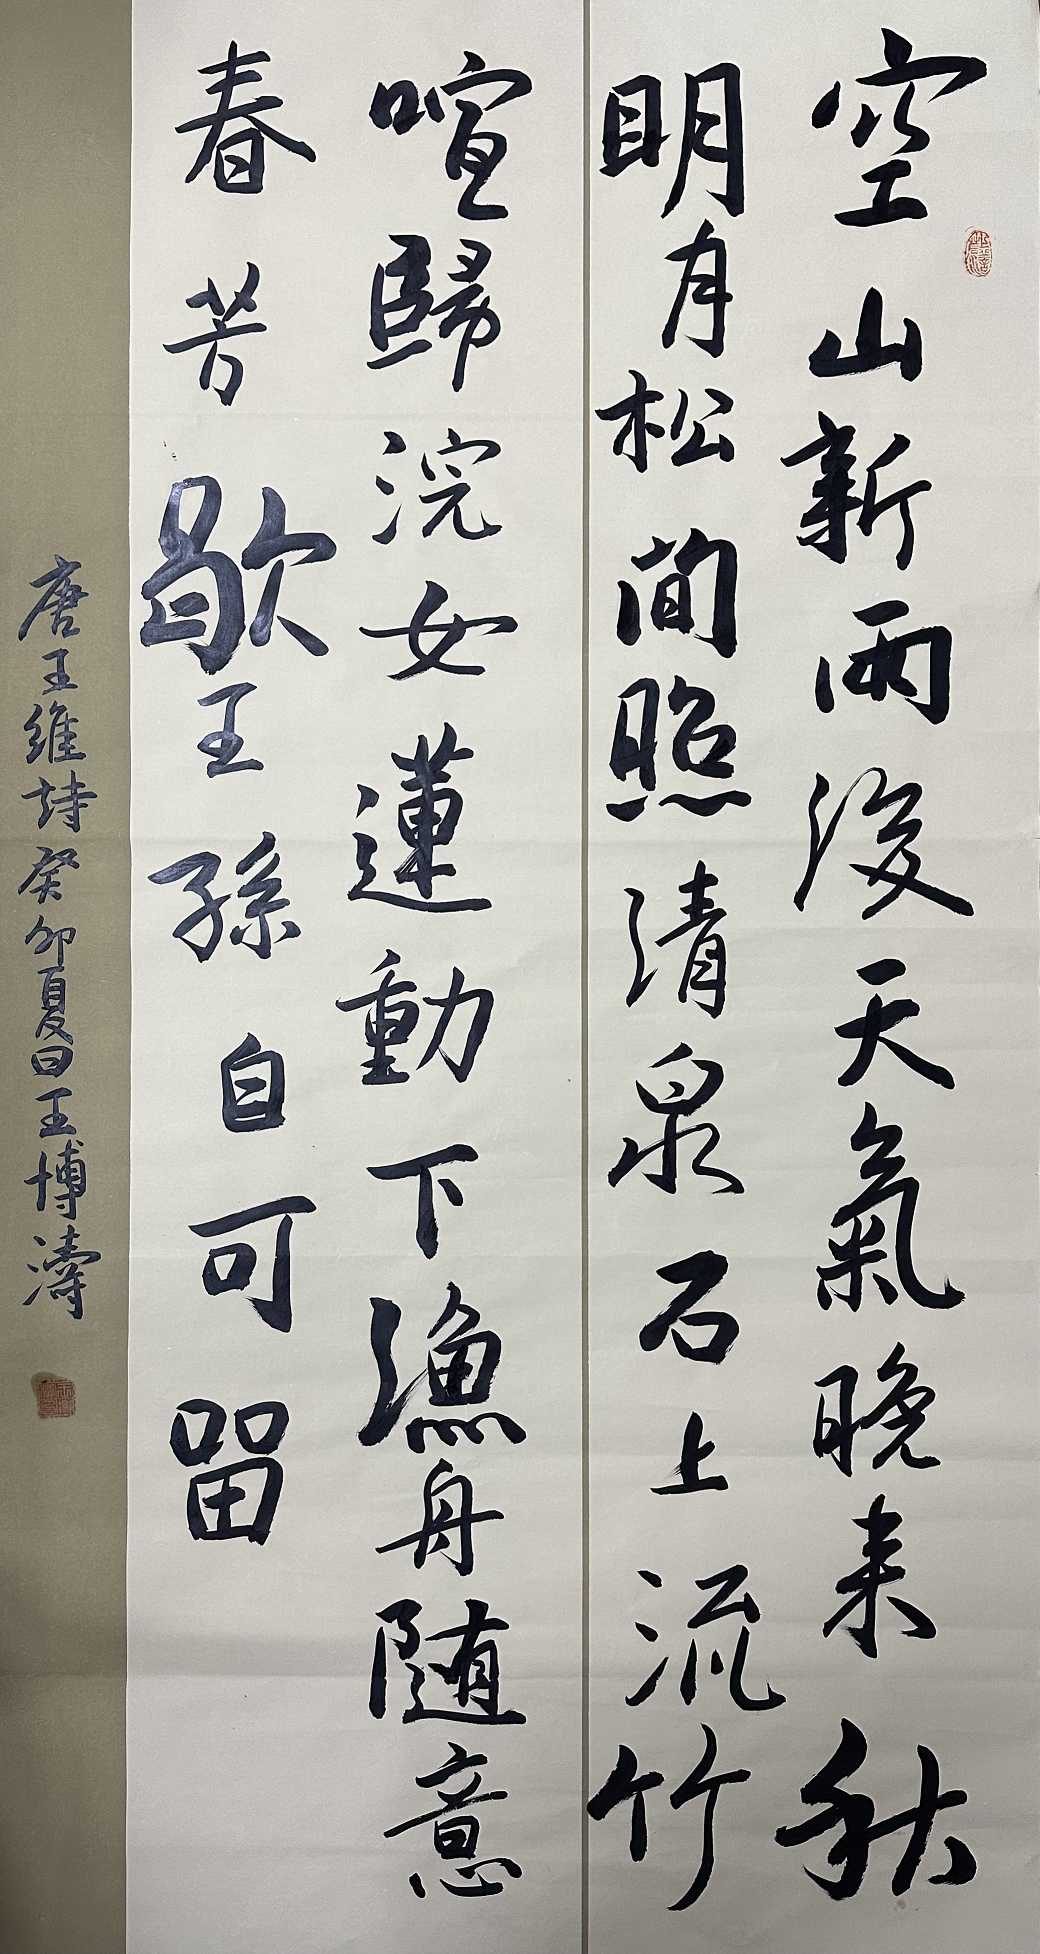 空山新雨後天氣晚来秋
明月松间照清泉石上流竹
喧歸浣女蓮動下漁舟随意
春芳歇王孫自可留
唐王維詩癸卯夏日王博濤